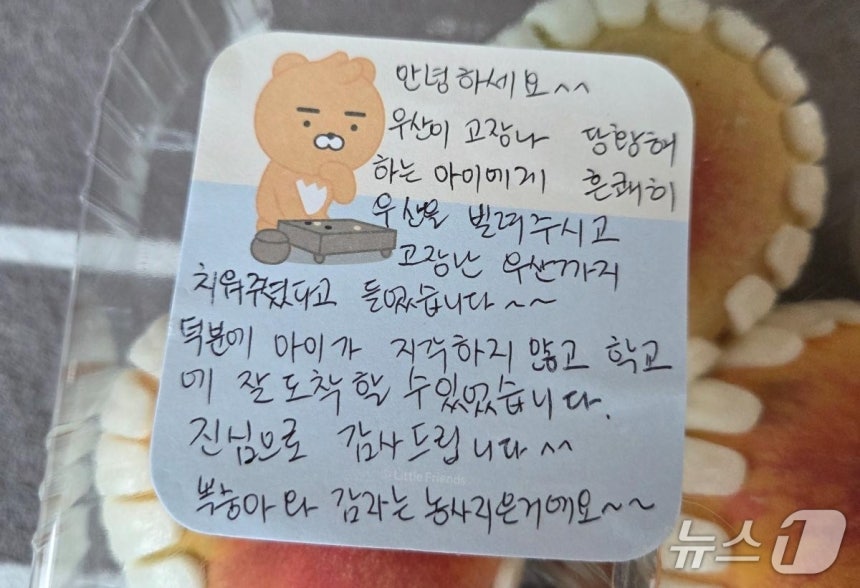 안녕하세요^^
우산이 고장나 당황해
하는 아이에게 흔쾌히
우산을 빌려주시고
고장난 우산까지
치워주셨다고 들었습니다~~
덕분에 아이가 지각하지 않고 학교
에 잘 도착할 수있었습니다.
진심으로 감사드립니다^^
© Little Friends
복숭아와 감자는 농사지은거에요~~
뉴스1